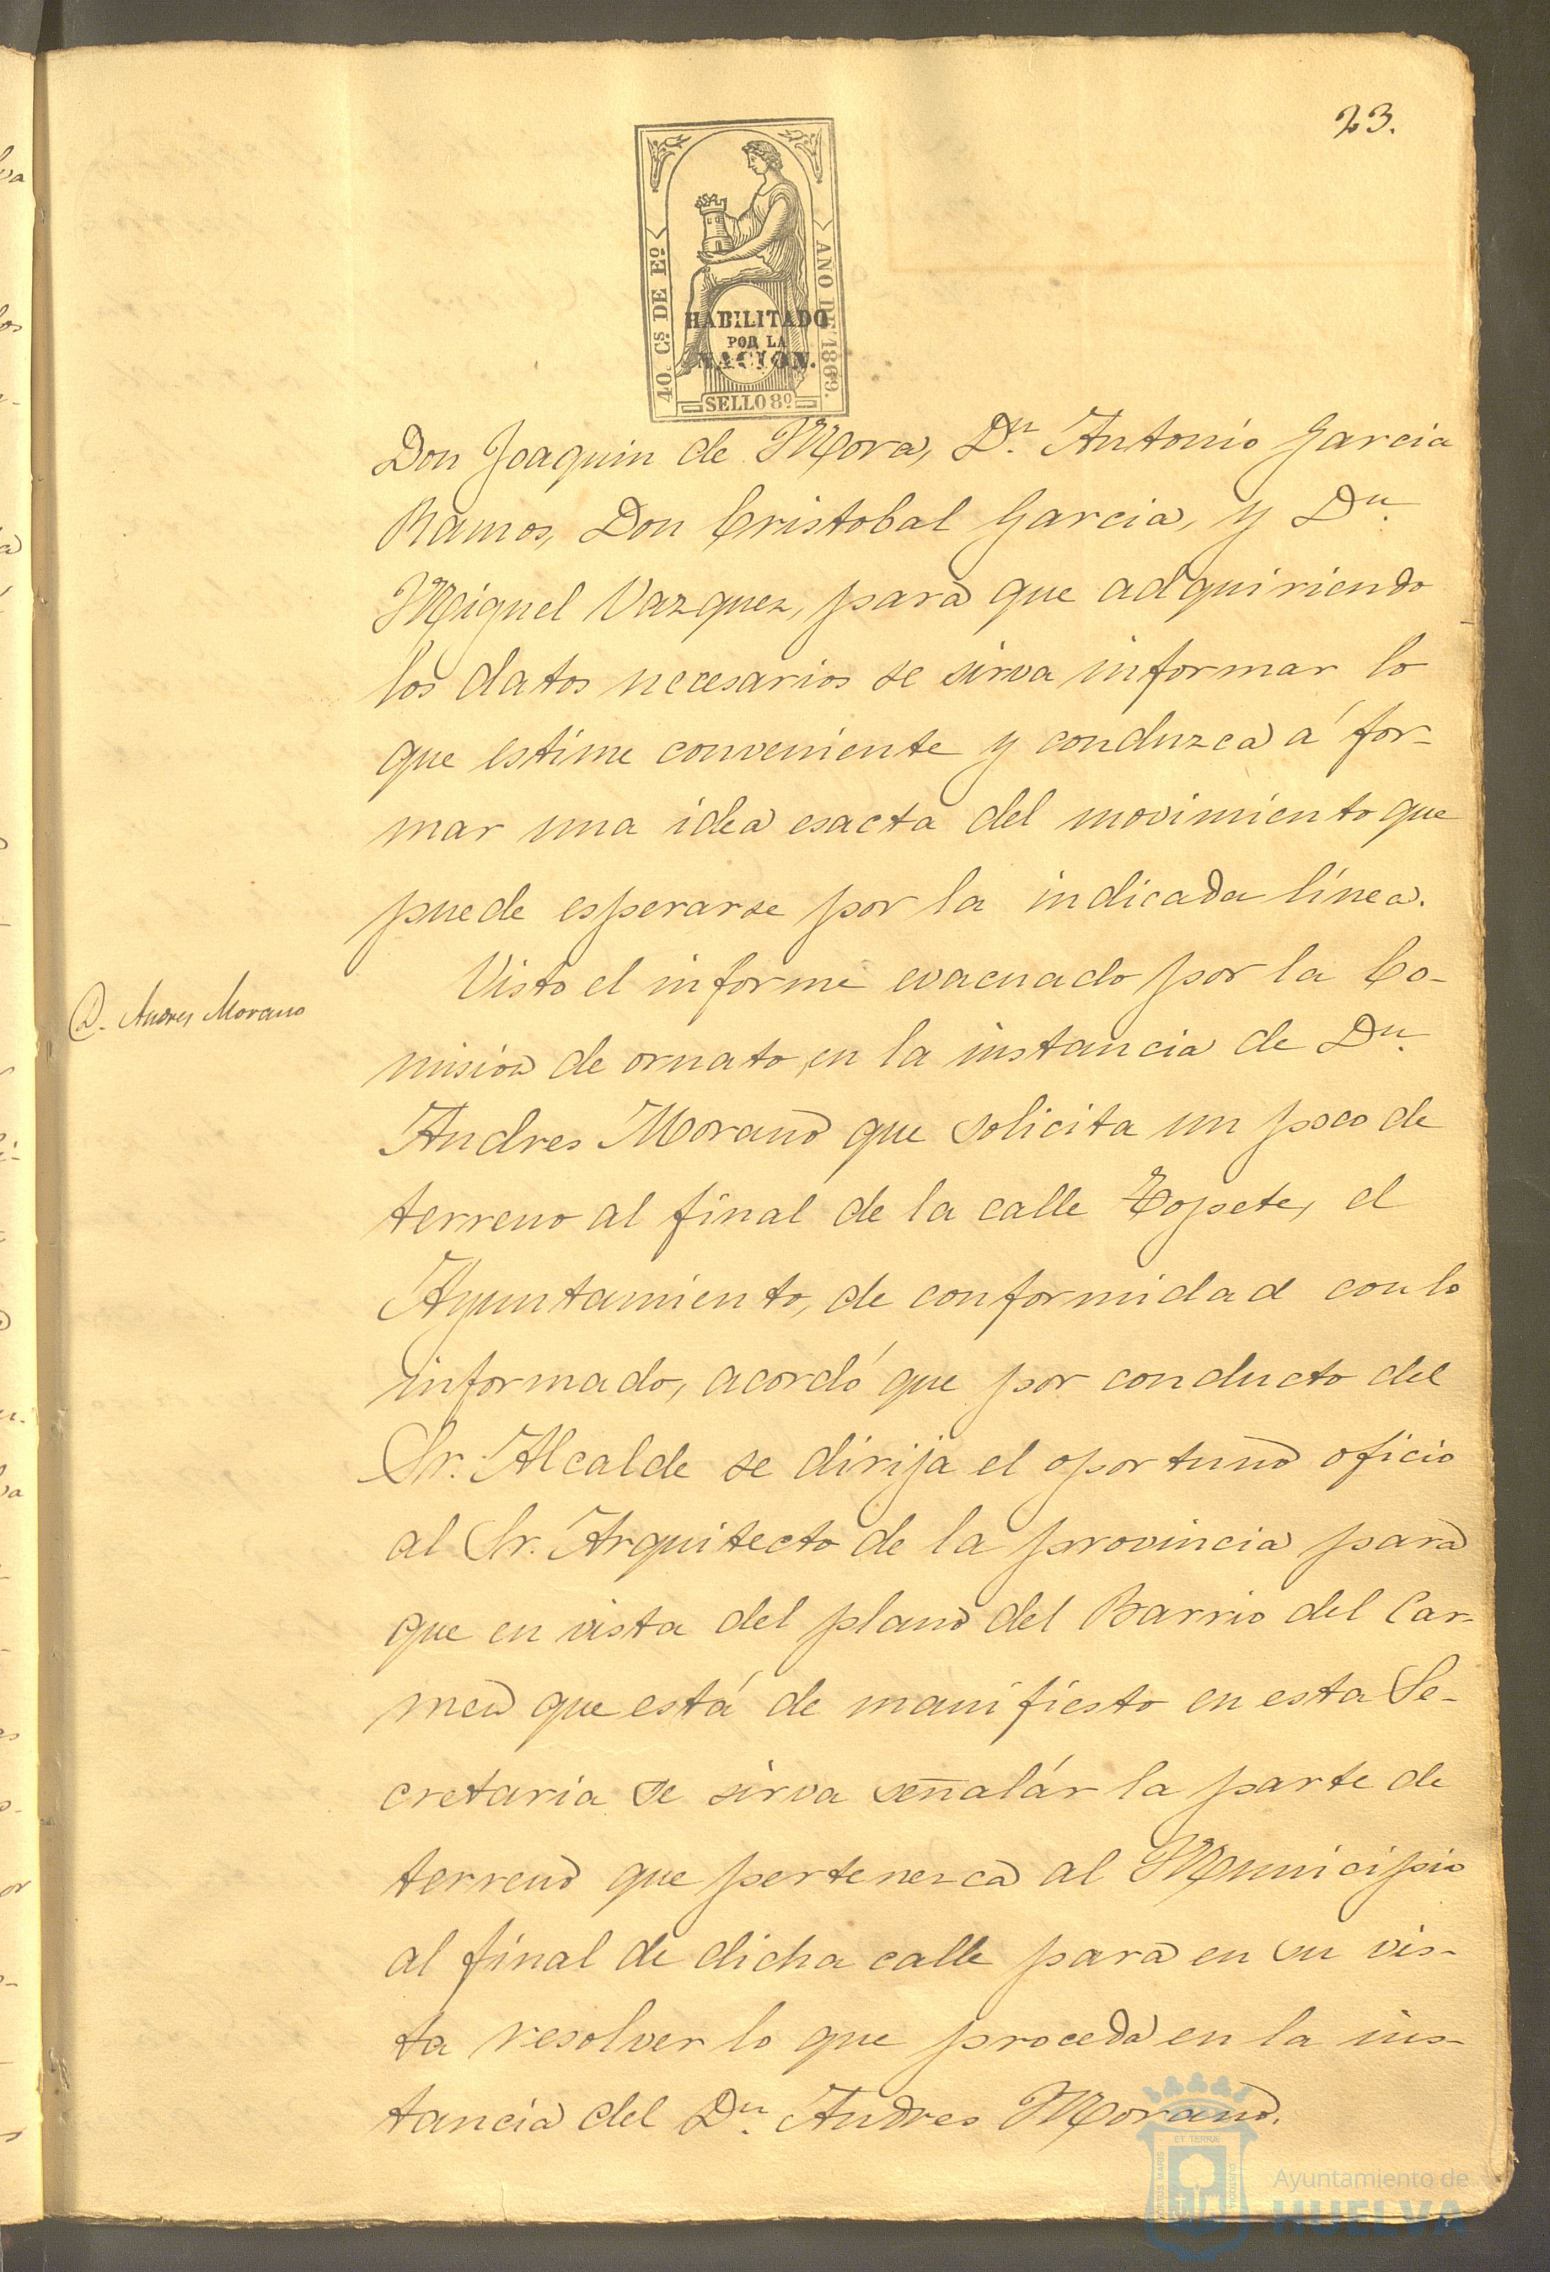 23.
40. Cs. DE Eo.
AÑO DE 1869.
HABILITADO
POR LA
NACION.
SELLO 8º
Don Joaquin de Mora, Dn. Antonio Garcia
Ramos, Don Cristobal Garcia, y Dn.
Miguel Vazquez, para que adquiriendo
los datos necesarios se sirva informar lo
que estime conveniente y conduzca á for-
mar una idea esacta del movimiento que
puede esperarse por la indicada línea.
D. Andres Morano
Visto el informe evacuado por la Co-
mision de ornato, en la instancia de Dn.
Andres Morano que solicita un poco de
terreno al final de la calle Topete, el
Ayuntamiento, de conformidad con lo
informado, acordó que por conducto del
Sr. Alcalde se dirija el oportuno oficio
al Sr. Arquitecto de la provincia para
que en vista del plano del Barrio del Car-
men que está de manifiesto en esta Se-
cretaria se sirva señalár la parte de
terreno que pertenezca al Municipio
al final de dicha calle para en su vis-
ta resolver lo que proceda en la ins-
tancia del Dn. Andres Morano.
Ayuntamiento de
HUELVA